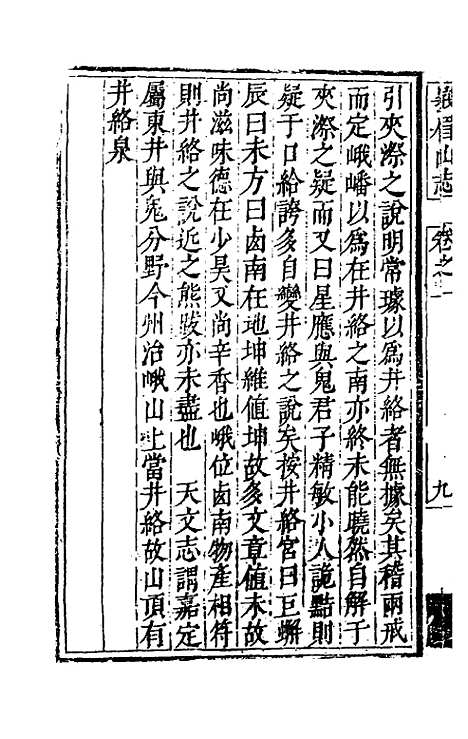 引夾漈之說明常璩以爲井絡者無據矣其稽兩戒
而定峨嶓以爲在井絡之南亦終未能曉然自解于
夾漈之疑而又曰星應與鬼君子精敏小人詭黠則
疑于口給誇多自變井絡之說矣按井絡宮曰巨蠏
辰曰未方曰鹵南在地坤維值坤故多文章值未故
尚滋味德在少昊又尚辛香也峨位鹵南物產相符
則井絡之說近之熊跋亦未盡也　天文志謂嘉定
屬東井與鬼分野今州治峨山上當井絡故山頂有
井絡泉
峨眉山志　卷之一　九